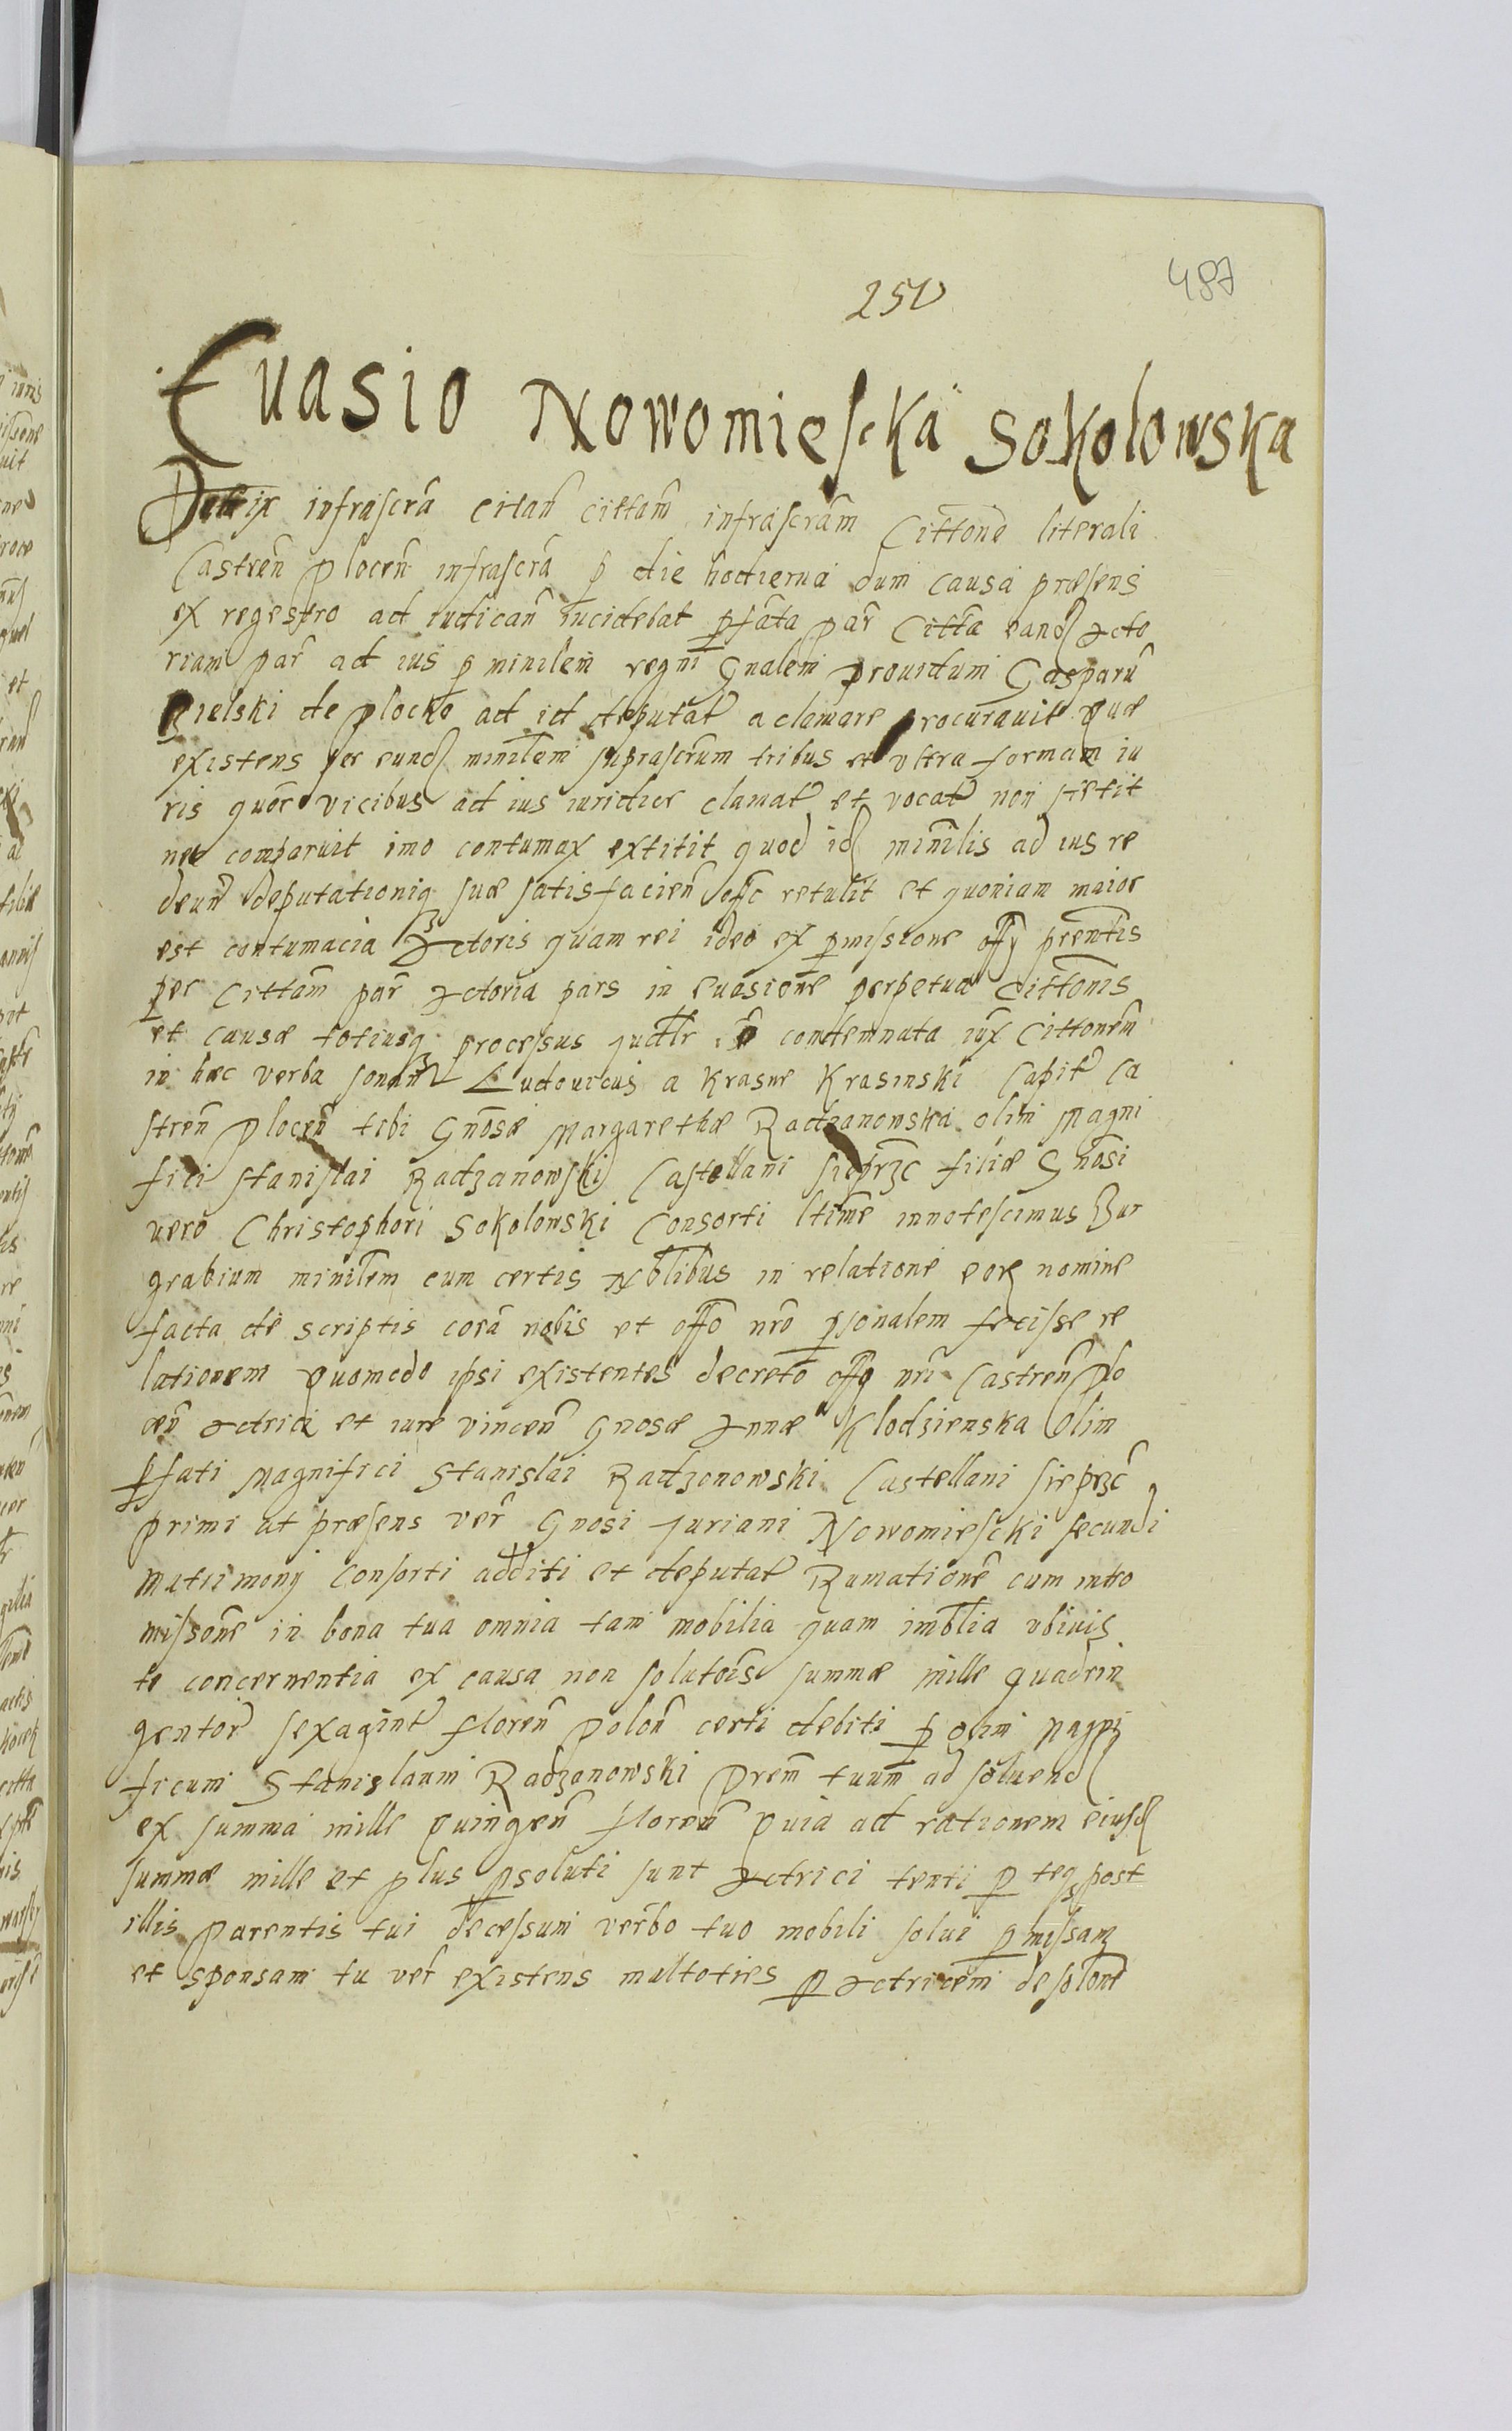 487
250
Evasio Nowomiescka Sokolowska
infrascrã Citañ cittam infrascrãm Cittone literali
Castren̄ Plocen̄ infrascrã p̱ die hodierna dum causa præsens
ex regestro ad iudicañ incidebat p̱fata par̃ Citta eand Acto
riam par̃ ad ius p̱ minilem regni Gnalem prouidum Gasparũ
Bielski de Plocko ad id deputat̃ aclamare procurauit Quæ
existens per eund minilem suprascrum tribus et vltra formam iu
ris quor̃ vicibus ad ius iuridice clamat̃ et vocat̃ non stetit
nec comparuit imo contumax extitit quod id minilis ad ius re
deun̄ deputationiq suæ satisfacien̄ offc retulit et quoniam maior
est contumacia Actoris quam rei ideo ex p̱missione offy prentis
per Cittam par̃ Actoria pars in Euasione perpetua Cittonis
et causæ totiusq processus condemnata iux Cittonem
in hæc verba sonan̄ Ludouicus a Krasne Krasinski Capit̃ Ca
stren̄ Plocen̄ tibi Gnosæ Margarethæ Radzanowska olim Magni
fici Stanislai Radzanowski Castellani Sieprzc filiæ Gnosi
vero Christophori Sokolowski Consorti ltime innotescimus Bur
grabium minilem cum certis Nblibus in relatione eor nomine
facta de scriptis corã nobis et offo nrõ p̱sonalem fecisse re
lationem Quomodo ipsi existentes decreto offy nri Castren̄ Plo
cen̄ Actrici et iure vincen̄ Gnosæ Annæ Klodzienska Olim
p̱fati Magnifici Stanislai Radzonowski Castellani Sieprzc
primi at præsens ver̃ Gnosi Juriani Nowomiescki secundi
matrimony Consorti additi et deputat̃ Rumationẽ cum intro
missone in bona tua omnia tam mobilia quam imblia vbiuis
te concernentia ex causa non solutois summæ mille quadrin
gentor̃ sexagint̃ floren̄ Polon̄ certi debiti p̱ olim Magni
ficum Stanislaum Radzonowski Prem̄ tuum ad soluend
ex summa mille Quingen̄ floren̄ Quia ad rationem eiusd
summæ mille et plus p̱soluti sunt Actrici tenti p̱ teq post
illis parentis tui decessum verbo tuo mobili solui p̱missam
et sponsam tu ver̃ existens multoties p̱ Actricem de solone